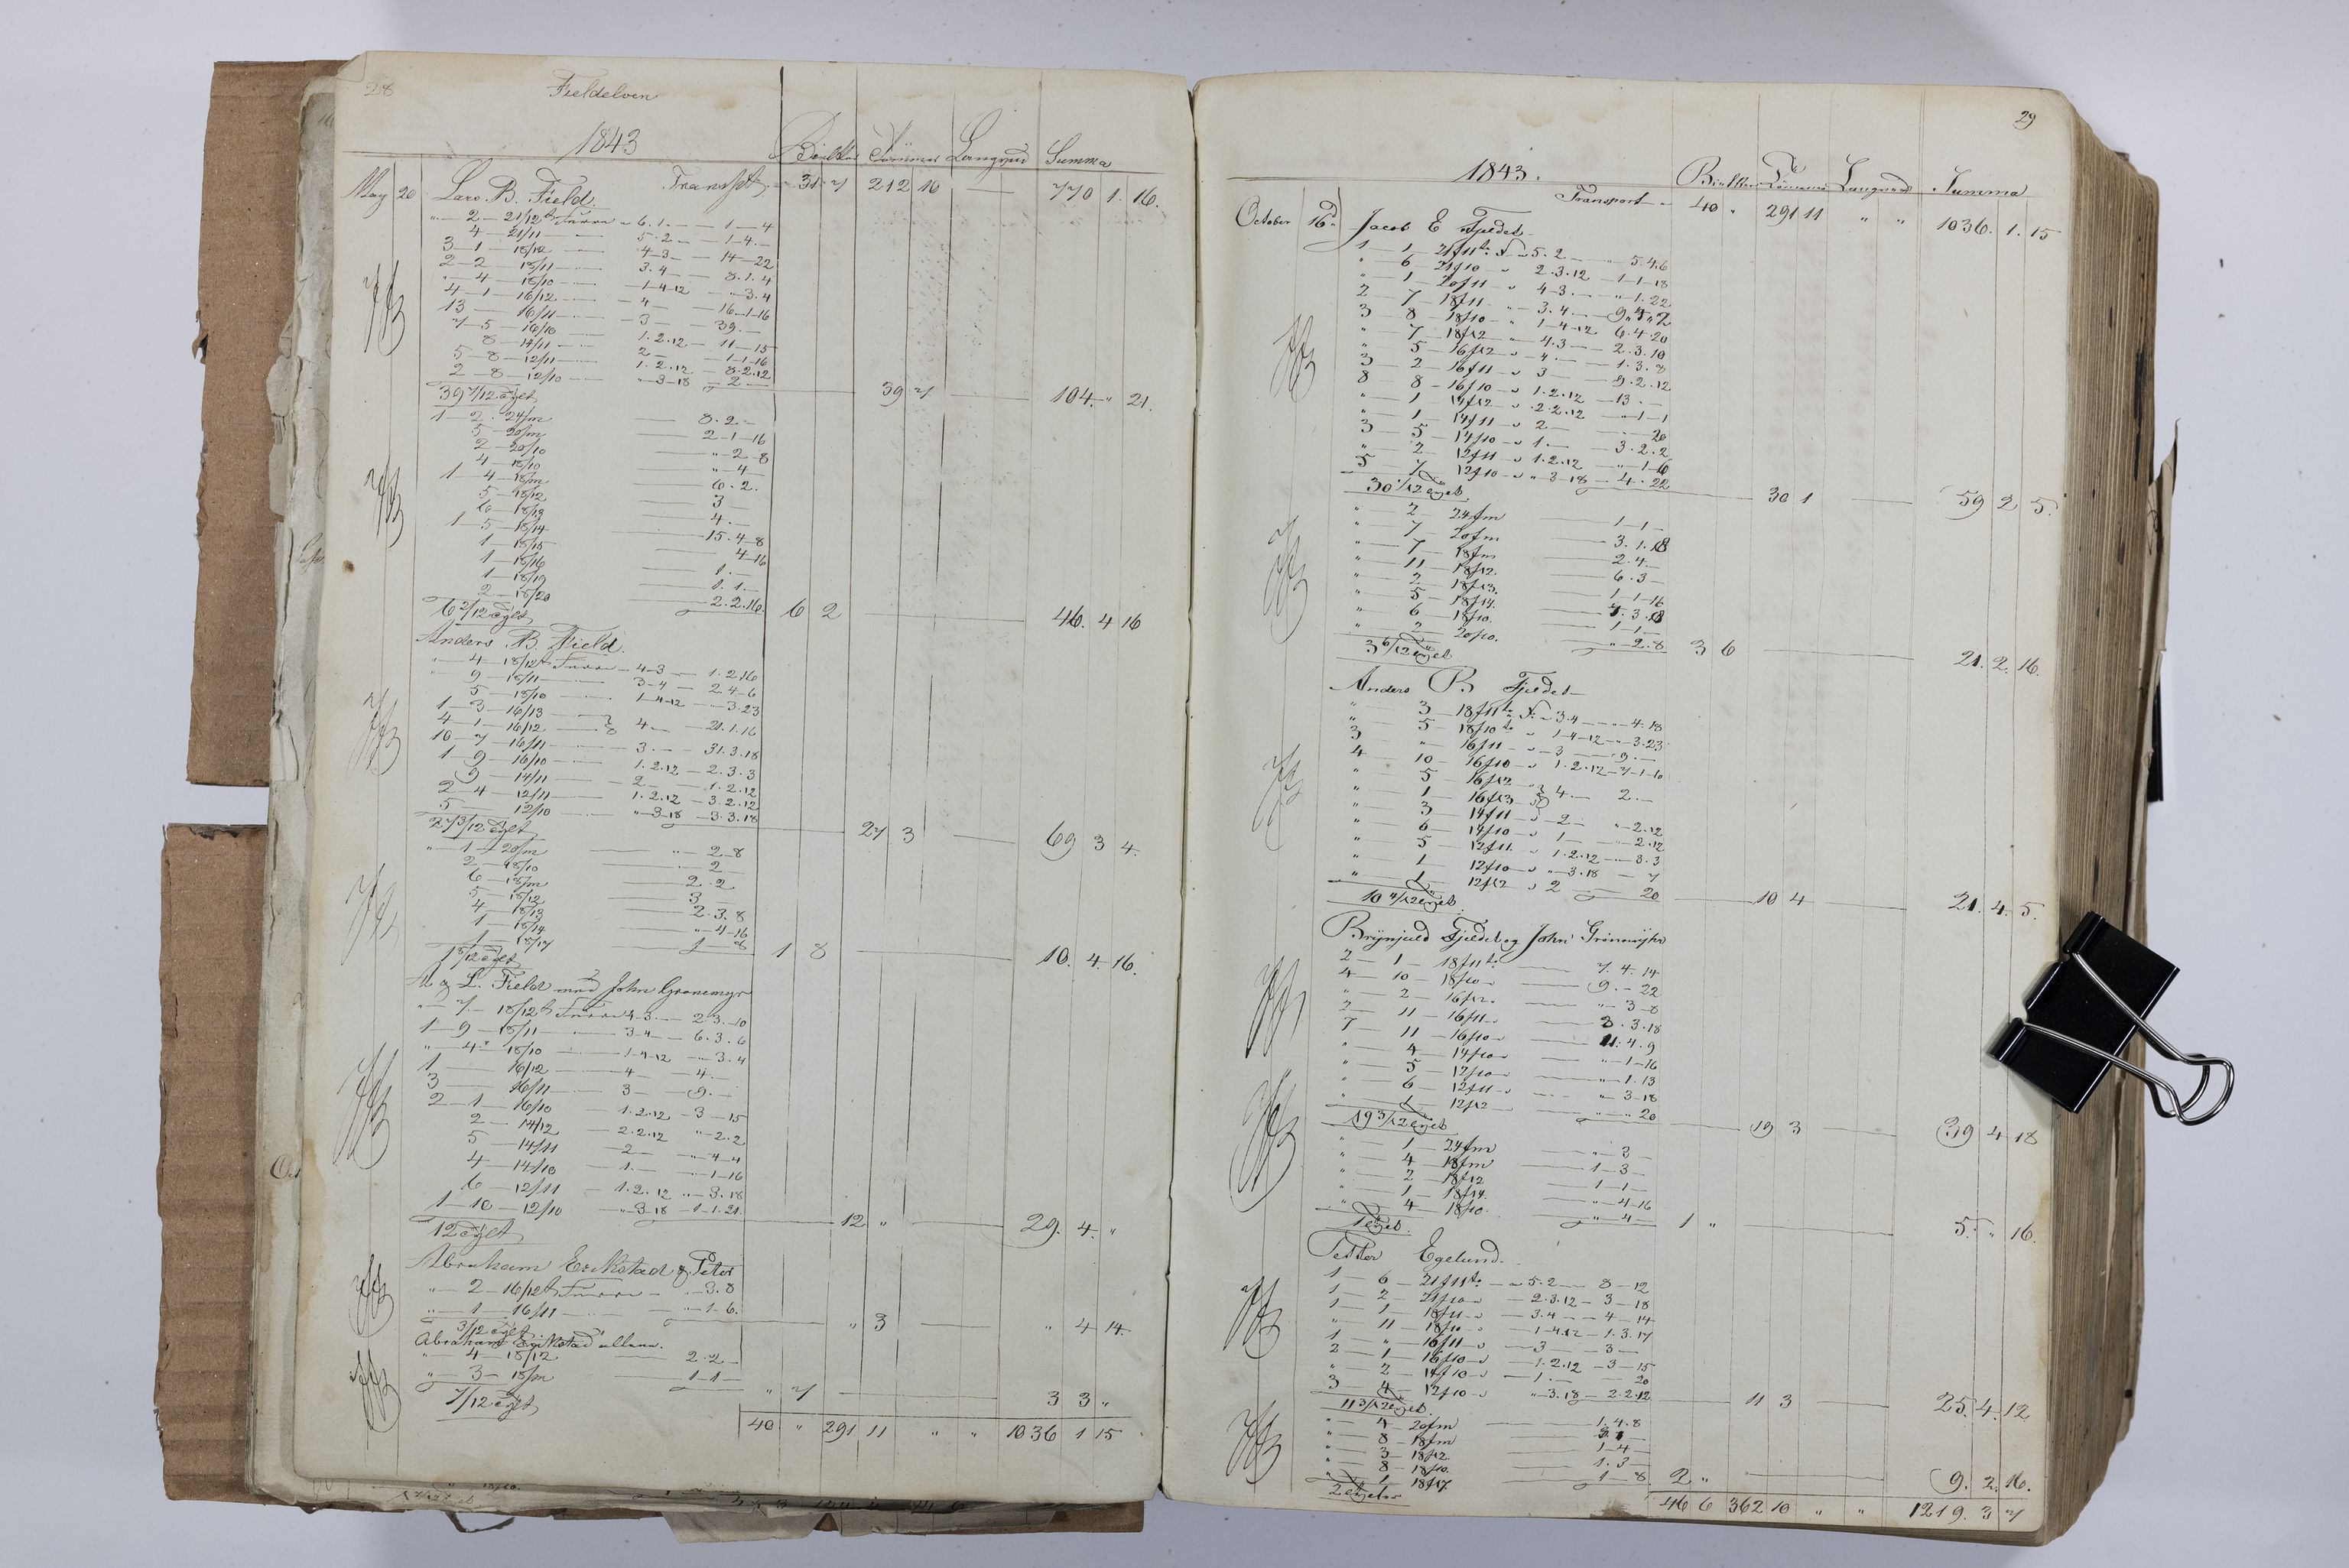 28
Fieldelven
1843
Bielker Tømmer Langved Summa
May 20 Lars B. Field. Transpt. 31 7 212 10 — 770 1. 16.
" — 2 — 21/12 t Furre — 6. 1. — 1 — 4
4 — 21/11 — 5. 2 — 1 — 4. —
3 — 1 — 18/12 — 4 — 3 — 14 — 22
2 — 2 — 18/11 — 3. 4 — 8. 1. 4
" — 4 — 18/10 — 1 — 4 — 12 " — 3. 4
4 — 1 — 16/12 — 4 — 16 — 1 — 16
13 — 16/11 — 3 — 39. —
7 — 5 — 16/10 — 1. 2. 12 — 11 — 15
8 — 14/11 — 2 — 1 — 1 — 16
5 — 8 — 12/11 — 1. 2. 12 — 8. 2. 12
2 — 8 — 12/10 — " — 3 — 18 — 2 —
39 7/12 tylt — 39 7 — 104. " 21.
1 — 2 — 24/m — 8. 2 —
5 — 20/m — 2 — 1 — 16
2 — 20/10 — " — 2 — 8
4 — 18/10 — " — 4 —
1 — 4 — 18/m — 6. 2.
5 — 18/12 — 3 —
6 — 18/13 — 4. —
1 — 5 — 18/14 — 15. 4 — 8
1 — 18/15 — 4 — 16
1 — 18/16 — 1. —
1 — 18/19 — 1. 1. —
2 — 18/20 — 2. 2. 16.
6 2/12 tylt 6 2 — 46. 4 16
Anders B. Field.
" — 4 — 18/12 t Furre — 4 — 3 — 1. 2. 16
" 9 — 18/11 — 3 — 4 — 2. 4 — 6
5 — 18/10 — 1 — 4 — 12 — " 3. 23
1 — 3 — 16/13 —
4 — 1 — 16/12 — 4 — 21. 1. 16
10 — 7 — 16/11 — 3. — 31. 3. 18
1 — 9 — 16/10 — 1. 2. 12 — 2. 3. 3
9 — 14/11 — 2 — 1. 2. 12
2 — 4 — 12/11 — 1. 2. 12 — 3. 2. 12
5 — 12/10 — " — 3 — 18 — 3. 3. 18
27 3/12 tylt — 27 3 — 69 3 4.
" — 1 — 20/m — " — 2 — 8
2 — 18/10 — " — 2 —
6 — 18/m — 2 . 2
5 — 18/12 — 3 —
4 — 18/13 — 2. 3. 8
1 — 18/14 — " — 4 — 16
1 — 18/17 — 1 — 8
1 8/12 tylt 1 8 — 10. 4. 16.
A & L. Field med John Gronemyr
" — 7. — 18/12 t Furre 4. 3. — 2. 3. 10
1 — 9 — 18/11 — 3 — 4 — 6. 3. 6
" — 4 — 18/10 — 1 — 4 — 12 — " 3. 4
1 — 16/12 — 4 — 4. —
3 — 16/11 — 3 — 9. —
2 — 1 — 16/10 — 1. 2. 12 — 3 — 15
2 — 14/12 — 2. 2. 12 " — 2. 2
5 — 14/11 — 2 — " — 4 — 4
4 — 14/10 — 1. — " — 1 — 16
6 — 12/11 — 1. 2. 12 " — 3. 18
1 — 10 — 12/10 — " — 3 — 18 — 1 — 1. 21.
12 tylt — 12 " — 29. 4. "
Abraham Eckstad & Peter
" — 2 — 16/12 t Furre — " — 3. 8
" — 1 — 16/11 — " — 1 — 6.
3/12 tylt — " 3 — " 4 14.
Abraham Eckstad allene.
" — 4 — 18/12 — 2. 2 —
" — 3 — 18/m — 1 — 1 —
7/12 tylt " 7 — 3 3 "
40. " 291 11 " " 1036 1 15
29
1843.
Bielker Tømmer Langved Summa
Transport 40 " 291 11 " " 1036. 1. 15
October 16d Jacob E Fjeldet
1 — 1 — 21f11 t. F " 5. 2 — " 5. 4. 6
" 6 — 21f10 " 2. 3. 12 — 1 — 1 — 18
" 1 — 20f11 " 4 — 3. — " — 1. 22
2 — 7 — 18f11 " 3. 4. — 9. 4. 2
3 — 8 — 18f10 " 1 — 4 — 12 6. 4. 20
" 7 — 18f12 " 4. 3 — 2. 3. 10
" 5 — 16f12 " 4. — 1. 3. 8
3 — 2 — 16f11 " 3 — 9. 2. 12
8 — 8 — 16f10 " 1. 2. 12 — 13. —
" 1 — 14f12 " 2. 2. 12 " — 1 — 1
" 1 — 14f11 " 2 — " — 20
3 — 5 — 14f10 " 1. — 3. 2. 2
" 2 — 12f11 " 1. 2. 12 " — 1 — 6
5 — 7 — 12f10 " " 3 — 18 — 4. 22
30 1/12 tylt — 30 1 — 59 2 5.
" 2 — 24fm — 1 — 1 —
" 7 — 20fm — 3. 1. 18
" 7 — 18fm — 2. 4. —
" 11 — 18f12. — 6. 3 —
" 2 — 18f13. — 1 — 1 — 16
" 5 — 18f14. — 4. 3. 8
" 6 — 18f10. — 1 — 1 —
" 2 — 20f10. — " — 2. 8
3 6/12 tylt 3 6 — 21. 2. 16.
Anders B. Fjeldet
" 3 — 18f11 t. F. " 3. 4 — " 4. 18
" 5 — 18f10 t. " 1 — 4 — 12 — " 3. 23
3 " 16f11 " 3 — 9. —
4 — 10 — 16f10 " 1. 2. 12 — 7 — 1 — 10
" 5 — 16f12
" 1 — 16f13 " 4. — 2. —
" 3 — 14f11 " 2 — " — 2. 12
" 6 — 14f10 " 1 — " 2. 12
" 5 — 12f11. " 1. 2. 12 — " 3. 3
" 1 — 12f10 " " 3. 18 — 7
" 1 — 12f12 " 2 — 20
10 4/12 tylt — 10 4 — 21. 4. 5.
Brynjuld Fjeldet og John Grönemyhr
2 — 1 — 18f11 t. — 7. 4. 14
4 — 10 — 18f10 — 9. — 22
" 2 — 16f12. — " — 3 — 8
2 — 11 — 16f11 — 8. 3. 18
7 — 11 — 16f10 — 11. 4. 9
" 4 — 14f10 — " — 1 — 16
" 5 — 12f10 — " — 1. 13
" 6 — 12f11 — " 3 — 18
" 1 — 12f12 — " — " 20
19 3/12 tylt — 19 3 — 39 4 18
" 1 — 24fm — " — 3 —
" 4 — 18fm — 1 — 3 —
" 2 — 18f12 — 1 — 1 —
" 1 — 18f14. — " — 4 — 16
" 4 — 18f10. — " — 4 —
1 tylt. 1 " — 5. " 16.
Petter Egelund.
1 — 6 — 21f11 t. — " 5. 2 — 8 — 12
1 — 2 — 21f10 — 2. 3. 12 — 3 — 18
1 — 1 — 18f11 — 3. 4 — 4 — 14
" 11 — 18f10 — 1 — 4. 12 — 1. 3. 17
1 " — 16f11 — 3 — 3 —
2 — 1 — 16f10 — 1. 2. 12 — 3 — 15
" 2 — 14f10 — 1. — 20
3 — 4 — 12f10 — " — 3. 18 — 2. 2. 12
11 3/12 tylt. — 11 3 — 25. 4. 12
" 4 — 20fm — 1. 4. 8
" 8 — 18fm — 3. 1 —
" 3 — 18f12. — 1 — 4 —
" 8 — 18f10. — 1. 3 —
" 1 — 18f17 — 1 — 8
2 tylter 2 " — 9. 2. 16.
46 6 362 10 " " 1219. 3 7